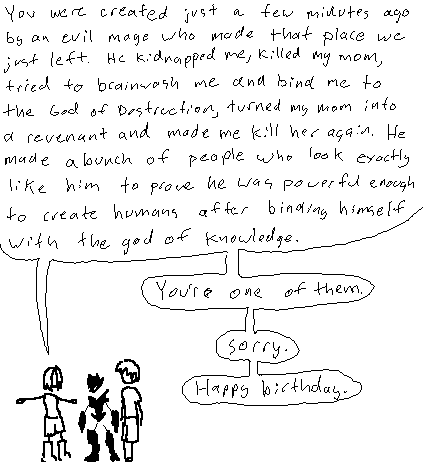 You were created just a few minutes ago
by an evil mage who made that place we
just left. He kidnapped me, killed my mom,
tried to brainwash me and bind me to
the God of Destruction, turned my mom into
a revenant and made me kill her again. He
made a bunch of people who look exactly
like him to prove he was powerful enough
to create humans after binding himself
with the god of knowledge.
You're one of them.
Sorry.
Happy birthday.